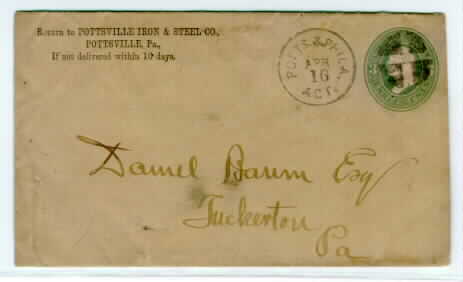 Return to POTTSVILLE IRON & STEEL CO.,
POTTSVILLE, Pa.,
If not delivered within 10 days.
POTTS. & PHILA.
APR
16
ACT.
Daniel Baum Esq
Tuckerton
Pa